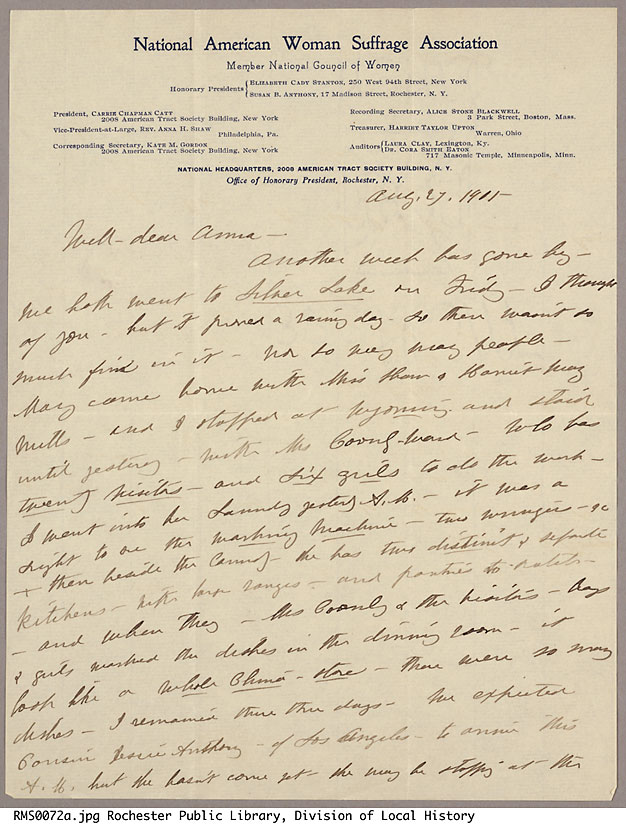 National American Woman Suffrage Association
Member National Council of Women
Honorary Presidents { ELIZABETH CADY STANTON, 250 West 94th Street, New York
SUSAN B. ANTHONY, 17 Madison Street, Rochester, N. Y.
President, CARRIE CHAPMAN CATT
2008 American Tract Society Building, New York
Vice-President-at-Large, REV. ANNA H. SHAW
Philadelphia, Pa.
Corresponding Secretary, KATE M. GORDON
2008 American Tract Society Building, New York
Recording Secretary, ALICE STONE BLACKWELL
3 Park Street, Boston, Mass.
Treasurer, HARRIET TAYLOR UPTON
Warren, Ohio
Auditors { LAURA CLAY, Lexington, Ky.
DR. CORA SMITH EATON
717 Masonic Temple, Minneapolis, Minn.
NATIONAL HEADQUARTERS, 2008 AMERICAN TRACT SOCIETY BUILDING, N. Y.
Office of Honorary President, Rochester, N. Y.
Aug. 27, 1905
Well - dear Anna -
Another week has gone by -
we both went to Silver Lake on Friday - I thought
of you - but it proved a rainy day - so there wasn't so
much fun in it - nor so very many people -
Mary came home with Miss Shaw & Harriet May
Mills - and I stopped at Wyoming and staid
until yesterday - with Mrs Coonly-Ward - who has
twenty visitors - and six girls to do the work -
I went into her Laundry yesterday A.M. - it was a
sight to see the washing machine - two wringers -
+ then beside the Laundry - she has two distinct & separate
kitchens - with large ranges - and pantries to match -
- and when they - Mrs Coonly & the visitors - boys
& girls washed the dishes in the dinning room - it
look like a whole China - store - there were so many
dishes - I remained there three days - We expected
Cousin Jessie Anthony - of Los Angeles - to arrive this
A. M. but she hasn't come yet - she may be stopping at the
RMS0072a.jpg Rochester Public Library, Division of Local History